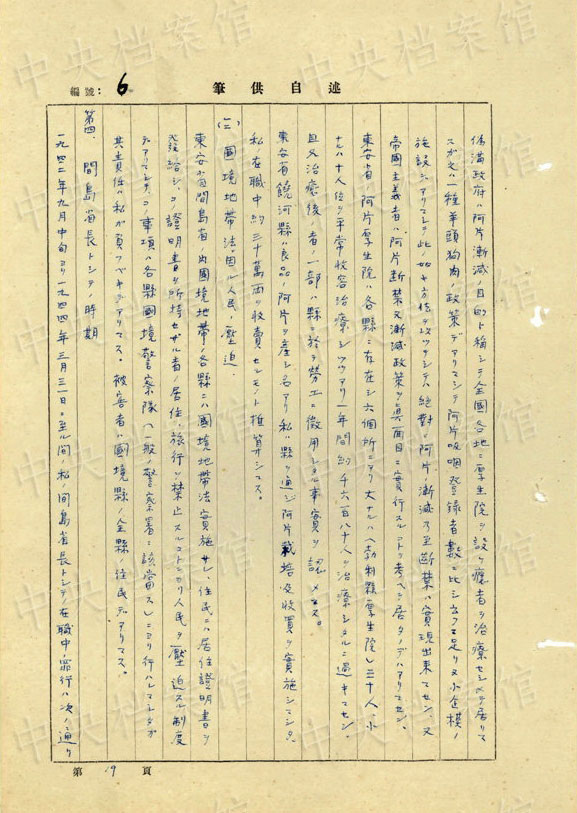 編號: 6
述自供筆
偽満政府ハ阿片漸減ノ目的ト稱シテ全國各地ニ厚生院ヲ設ケ癮者ヲ治療セシメテ居リマ
スガ之ハ一種羊頭狗肉ノ政策デアリマシテ阿片吸咽登録者數ニ比シ言フニ足リヌ小企模ノ
施設デアリマシテ此如キ方法ヲ以ツテシテハ絶對ニ阿片ノ漸減乃至断禁ハ實現出来マセン、又
帝國主義者ハ阿片断禁又漸減政策ヲ眞面目ニ實行スルコトヲ考ヘテ居タノデハアリマセン、
東安省ノ阿片厚生院ハ各縣ニ存在シ六個所ニアリ大ナルハ勃利縣厚生院ノ三十人、小
ナルハ十人位ヲ平常收容治療シツツアリ一年間約千六百八十人ヲ治療シタルニ過ギマセン、
且又治療後ノ者ノ一部ハ縣ニ於テ勞工ニ徴用シタル事實ヲ認メマス。
東安省饒河縣ハ良品ノ阿片ヲ產シ名アリ私ハ縣ヲ通ジ阿片栽培及收買ヲ實施シマシタ。
私在職中約三十萬両ヲ收賣セルモノト推算シマス。
(三) 國境地帶法ニ因ル人民ノ壓迫、
東安省間島省内國境地帶ノ各縣ニハ國境地帶法實施サレ、住民ニハ居住證明書ヲ
發給シ、コノ證明書ヲ所持セザル者ノ居住、旅行ヲ禁止スルコトニヨリ人民ヲ壓迫スル制度
デアリマシテ、コノ事項ハ各縣國境警察隊ハ一般ノ警察署ニ該當スルニヨリ行ハレマシタガ
其責任ハ私ガ負フベキデアリマス。被害者ハ國境縣ノ全縣ノ住民デアリマス。
第四、間島省長トシテノ時期
一九四二年九月中旬ヨリ一九四四年三月三一日ニ至ル間、私ノ間島省長トシテノ在職中ノ罪行ハ次ノ通リ
第 19 頁
中央档案馆